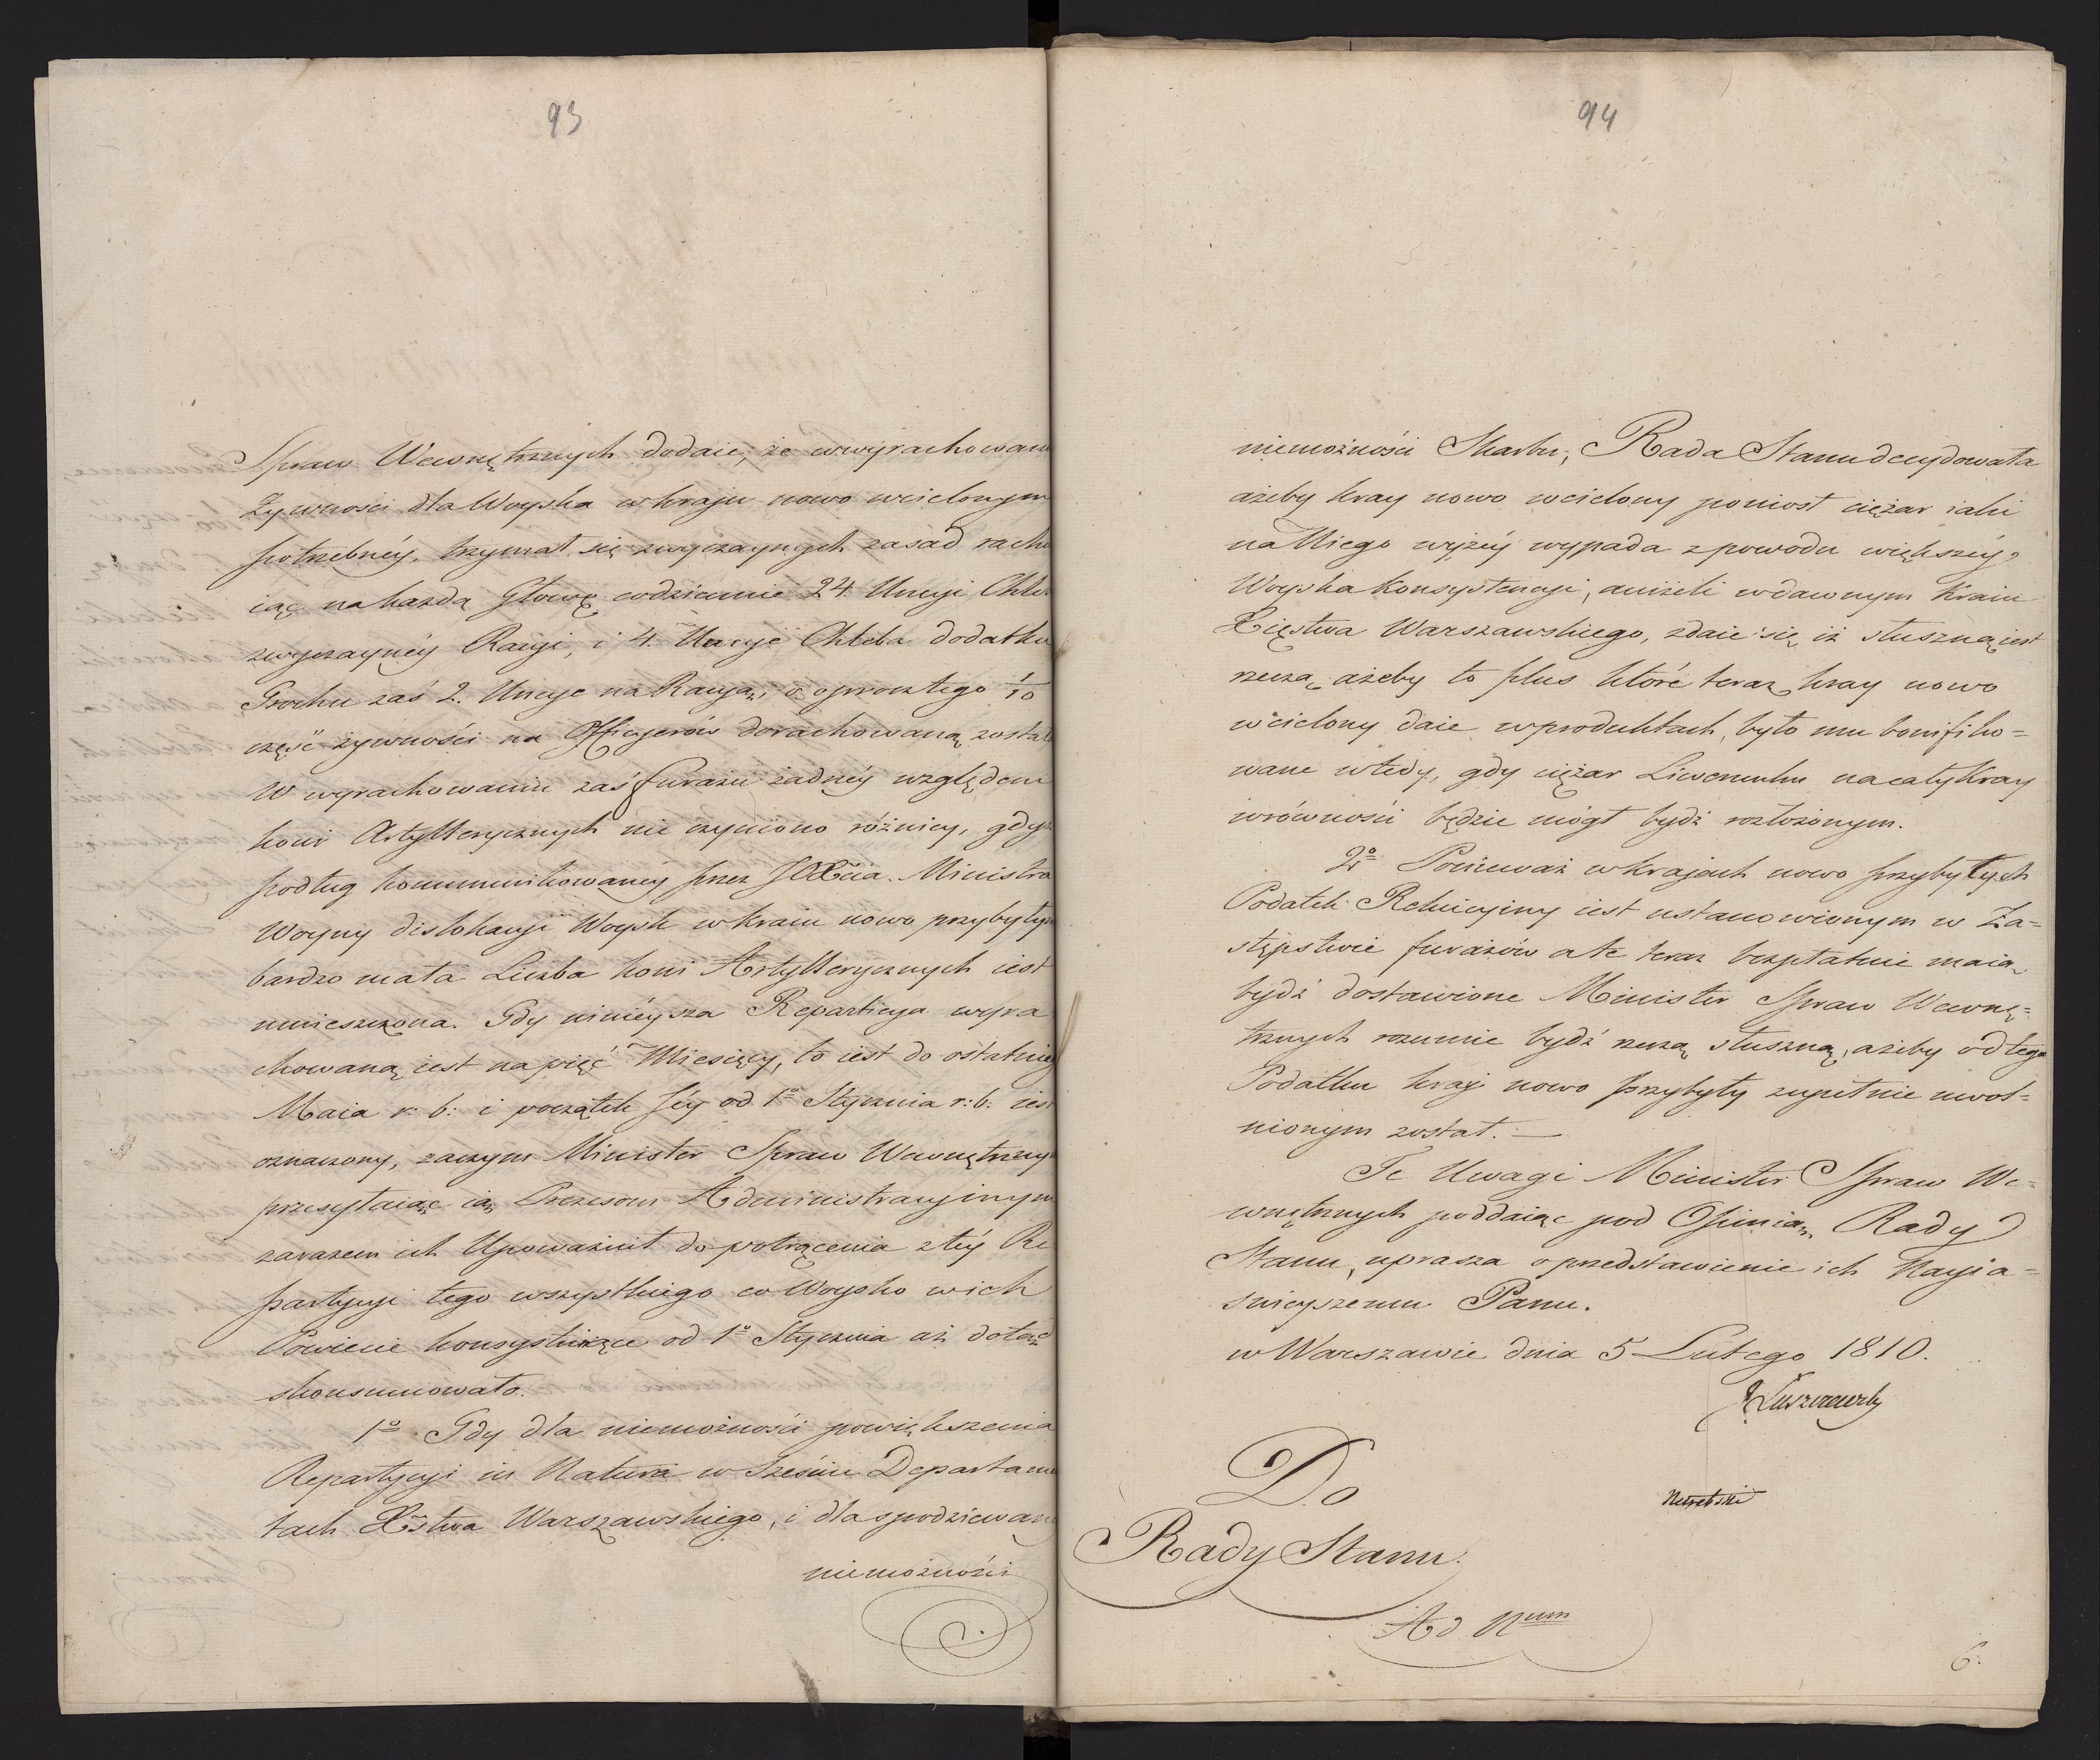 93
Spraw Wewnętrznych dodaie, że wwyrachowan
Żywności dla Woyska wkraju nowo wcielonym
potrzebnéy, trzymał się zwyczaynych zasad rachu
iąc nakażdą Głowę codziennie 24. Uncyi Chle
zwyczaynéy Racyi, i 4. Uncyie Chleba dodatku
Grochu zaś 2. Uncye na Racyą, a oprocztego 1/10
część żywności na Officyerów dorachowaną zosta
W wyrachowaniu zaś furażu żadnéy względem
koni Artyllerycznych nie czyniono różnicy, gdyż
podług kommunikowanéy przez JOXcia. Ministra
Woyny dislokacyi Woysk wkraiu nowo przybyłym
bardzo mała Liczba koni Artyllerycznych iest
umieszczona. Gdy ninieysza Reparticya wyra
chowaną iest napięć Miesięcy, to iest do ostatnie
Maia r: b: i początek Jéy od 1º Stycznia r: b: ies
oznaczony, zaczym Minister Spraw Wewnętrzny
przesyłaiąc ią Prezesom Administracyinym
zarazem ich Upoważnił do potrącenia ztéy Re
partycyi tego wszystkiego co Woysko wich
Powiecie konsystuiące od 1º Stycznia aż dotąd
skonsumowało.
1º Gdy dla niemożności powiększenia
Repartycyi in Natura w Sześciu Departame
tach Xstwa Warszawskiego, i dla spodziewan
niemożności
94
niemożności Skarbu; Rada Stanu decydowała
ażeby kray nowo wcielony poniosł ciężar iaki
na Niego wyżéy wypada zpowodu większéy
Woyska konsystencyi, aniżeli wdawnym Kraiu
Xięstwa Warszawskiego, zdaie się iż słuszną iest
rzeczą, ażeby to plus któré teraz kray nowo
wcielony daie wproduktach, było mu bonifiko=
wane wtedy, gdy ciężar Liwerunku nacały Kray
wrówności będzie mógł bydź rozłożonym.
2º Ponieważ wkrajach nowo przybyłych
Podatek Reluicyiny iest ustanowionym w Za=
stępstwie furażów a te teraz bezpłatnie maią
bydź dostawione Minister Spraw Wewnę=
trznych rozumie bydź rzeczą słuszną, ażeby odtego
Podatku kraj nowo przybyły zupełnie uwol=
nionym został. —
Te Uwagi Minister Spraw We=
wnętrznych poddaiąc pod Opinią Rady
Stanu, uprasza o przedstawienie ich Nayia=
śnieyszemu Panu.
w Warszawie dnia 5 Lutego 1810.
J Łuszczewsky
Do
Rady Stanu.
Ad Num
6.